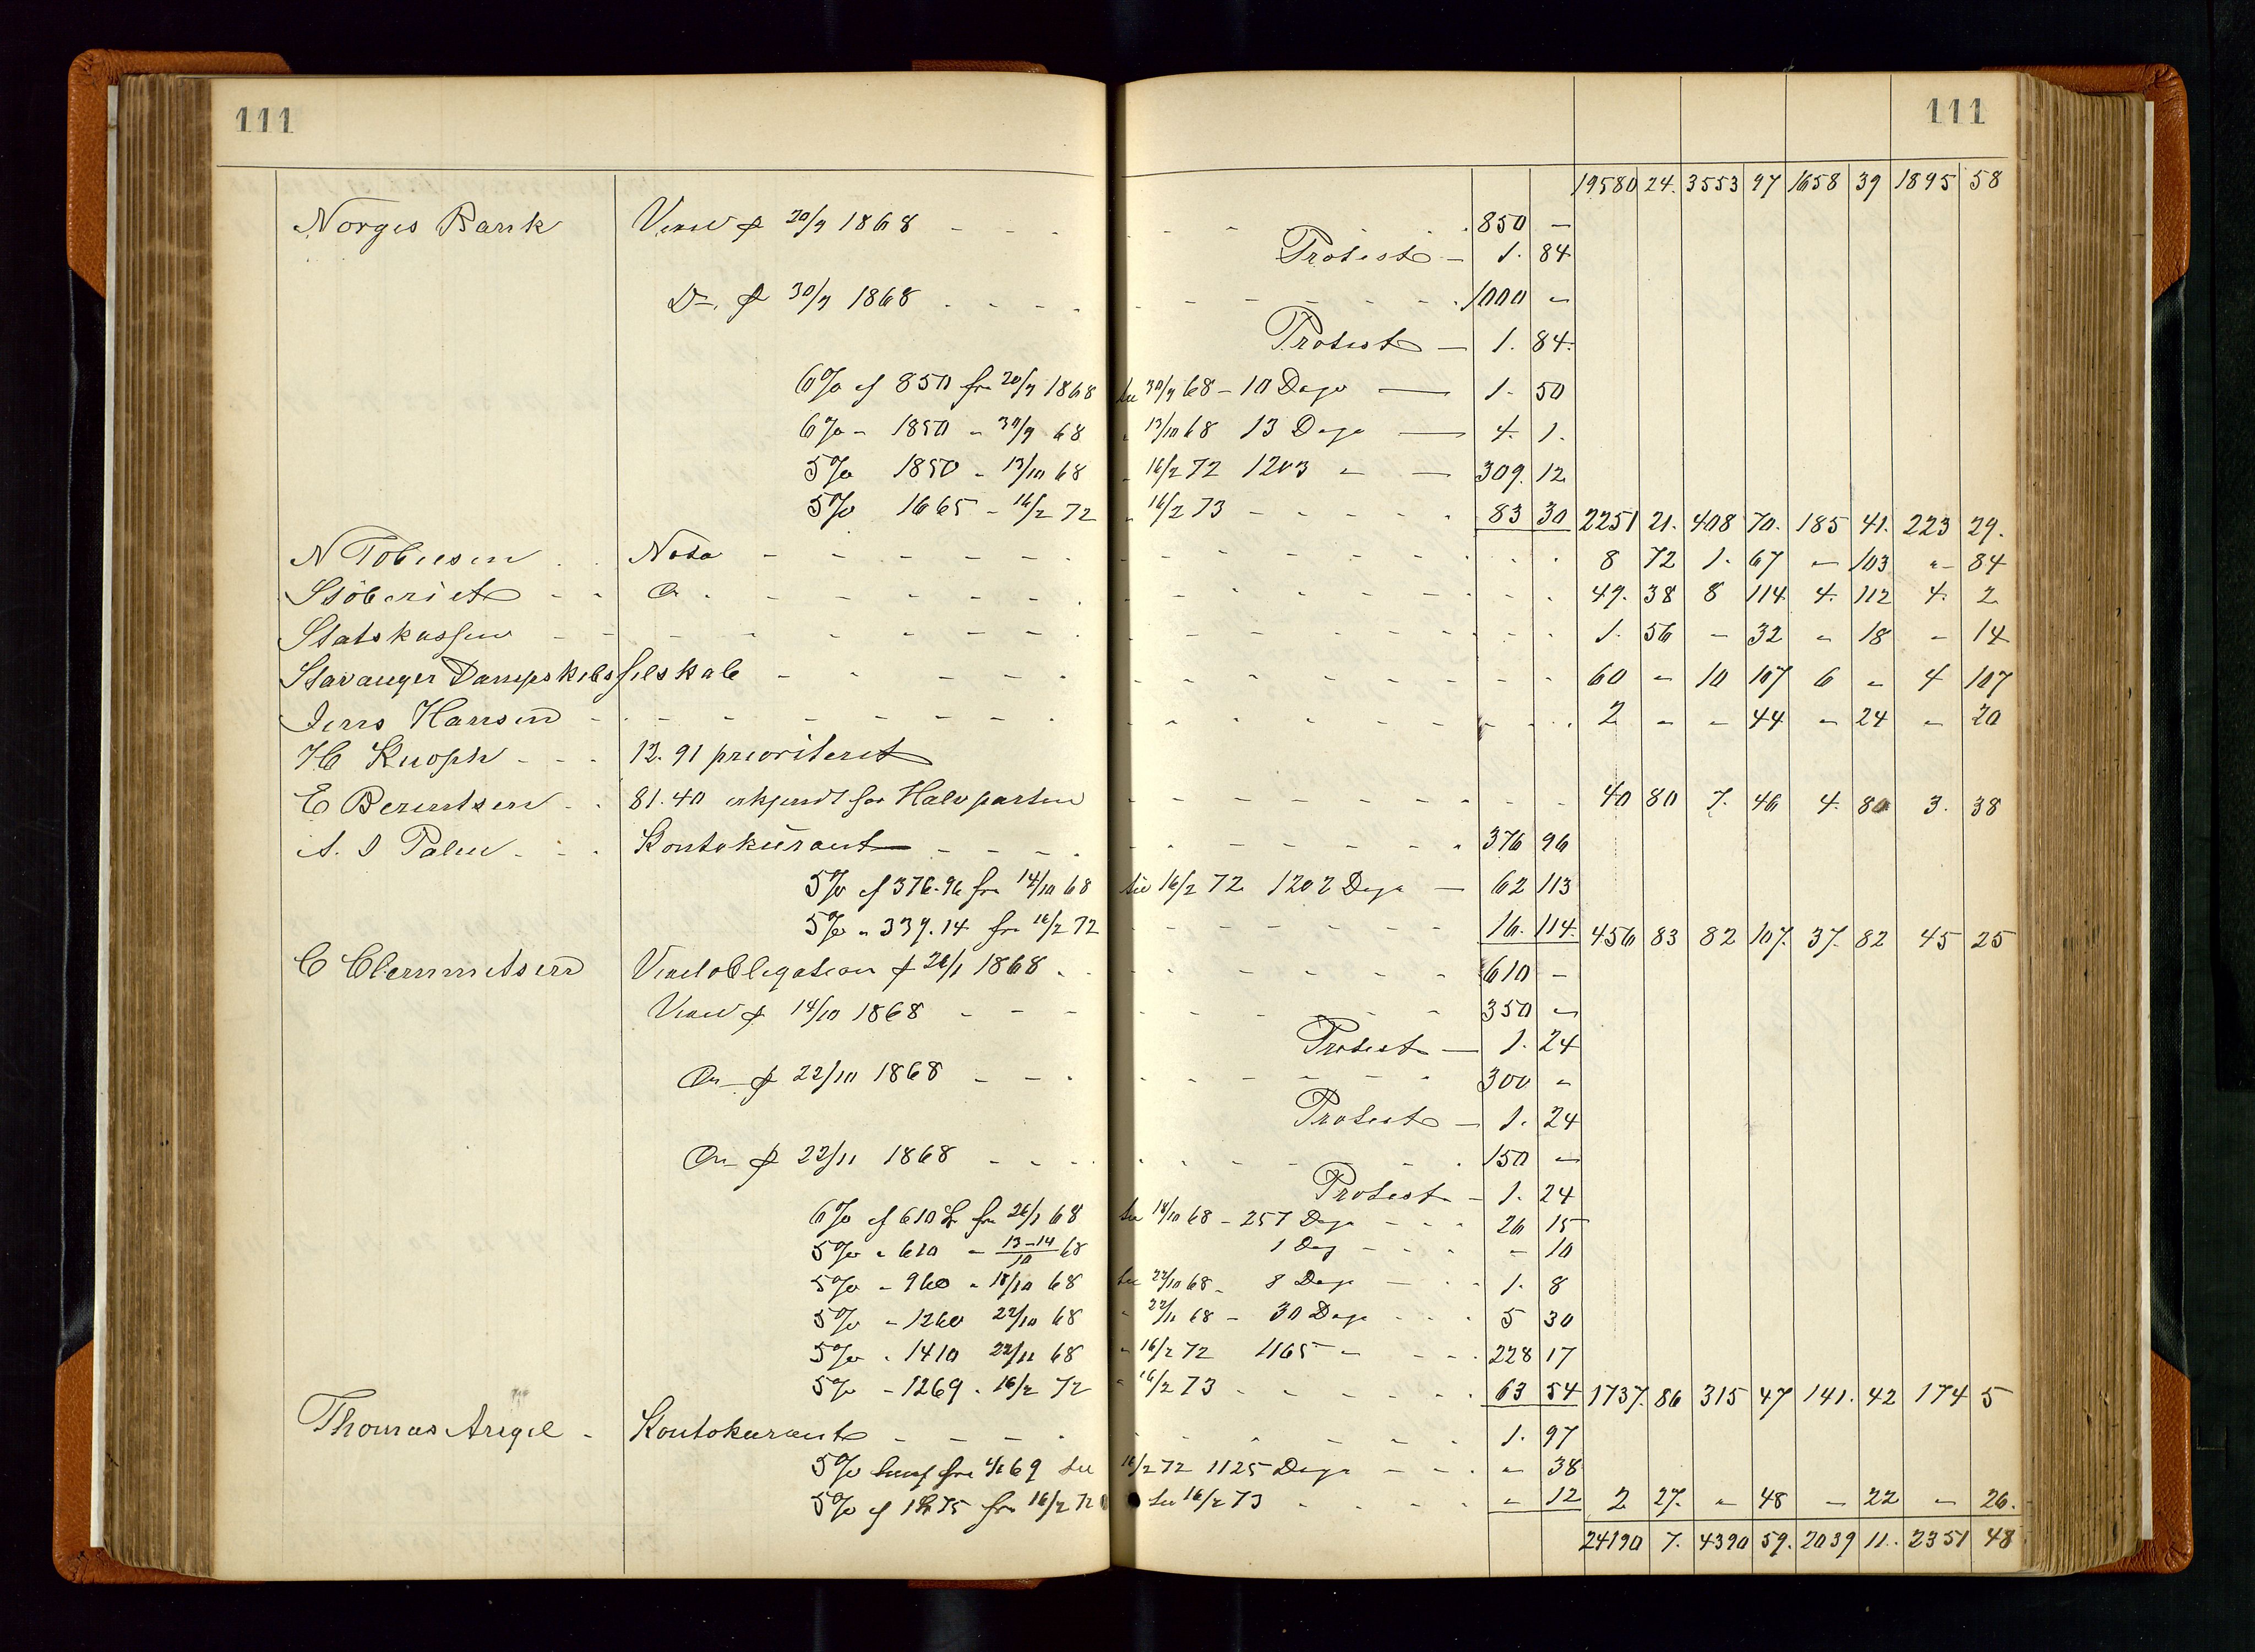 111 111
19580 24. 3553 97 1658 39 1895 58
Norges Bank Vexel pr 20/9 1868 - - - 850 -
Protest - 1. 84
Do. pr 30/9 1868 - - - 1000 -
Protest - 1. 84.
6% af 850 fra 20/9 1868 til 30/9 68 - 10 Dage - 1. 50
6% - 1850 - 30/9 68 " 13/10 68 13 Dage - 4. 1.
5% 1850 - 13/10 68 - 16/2 72 1203 " - 309. 12
5% 1665 - 16/2 72 " 16/2 73 - - - 83 30 2251 21. 408 70. 185 41. 223 29.
N Tobiesen Nota - - - 8 72 1. 67 - 103 " 84
Sjöberiet - - - - 49. 38 8 114 4. 112 4. 2
Statskassen - - - 1. 56 - 32 " 18 - 14
Stavanger Dampskibsselskab - - - 60 - 10 107 6 - 4 107
Jens Hansen - - - 2 - - 44 - 24 - 20
H Knoph - - - 12. 91 prioriteret
E Berentsen - - 81. 40 erkjendt for Halvparten - - - 40 80 7. 46 4. 80 3. 38
A. I Palm - - - Kontokurant - - - 376 96
5% af 376.96 fra 14/10 68 til 16/2 72 1202 Dage - 62 113
5% " 339.14 fra 16/2 72 - - - 16. 114. 456 83 82 107. 37. 82 45 25
C Clemmetsen Vexelobligation pr 26/1 1868 - - - 610 -
Vexel pr 14/10 1868 - - - 350 -
Protest - 1. 24
Do pr 22/10 1868 - - - 300 -
Protest - 1. 24
Do pr 22/11 1868 - - - 150 -
Protest - 1. 24
6% af 610 fra 26/1 68 til 13/10 68 - 257 Dage - - - 26 15
5% " 610 - 13-14/10 68 1 Dag - - - - 10
5% - 960 " 14/10 68 til 22/10 68 - 8 Dage - - 1. 8
5% - 1260 22/10 68 " 22/11 68 - 30 Dage - - - 5 30
5% " 1410 22/11 68 " 16/2 72 1165 " - - - 228 17
5% - 1269 . 16/2 72 " 16/2 73 - - - 63 54 1737. 86 315 47 141. 42 174 5
Thomas Angel - Kontokurant - - - 1. 97
5% fra 69 til 16/2 72 1125 Dage - - - " 38
5% af 1 75 fra 16/2 72 til 16/2 73 - - - " 12 2 27. " 48 - 22 - 26.
24190 7. 4390 59. 2039 11. 2351 48